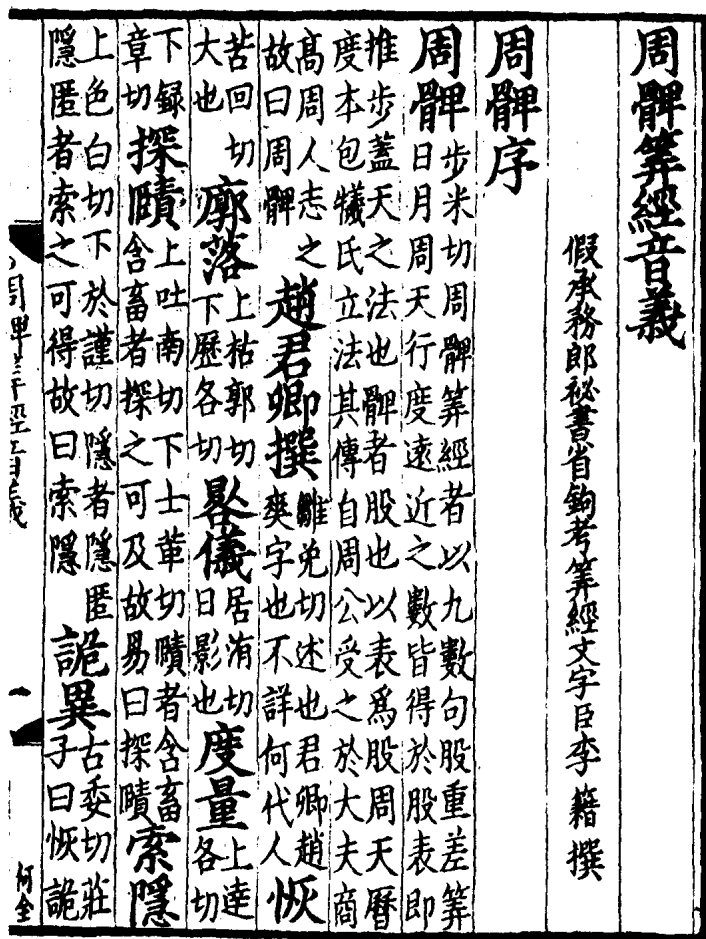 周髀筭經音義
假承務郎祕書省鉤考筭經文字臣李籍撰
周髀序
周髀步米切周髀筭經者以九數句股重差筭日月周天行度遠近之數皆得於股表即
推步蓋天之法也髀者股也以表爲股周天曆度本包犧氏立法其傳自周公受之於大夫商
高周人志之故曰周髀 趙君卿撰雛免切述也君卿趙爽字也不詳何代人 恢
苦回切大也 廓落上枯郭切下歷各切 晷儀居洧切日影也 度量上逹各切
下録章切 探賾上吐南切下士革切賾者含畜含畜者探之可及故易曰探賾 索隱
上色白切下於謹切隱者隱匿隱匿者索之可得故曰索隱 詭異古委切莊子曰恢詭
周髀筭經音義
何全